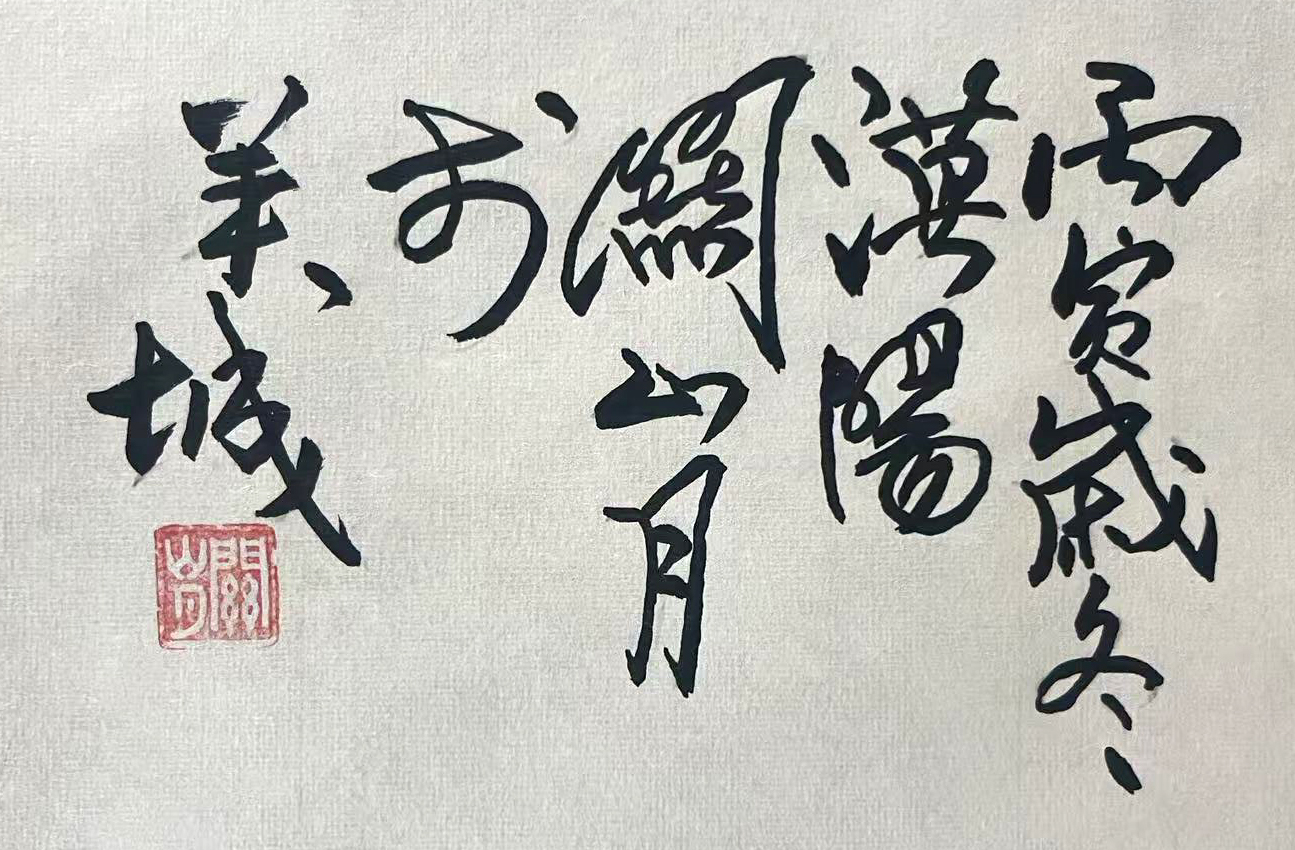 丙寅歲冬
漠陽
關山月
於
羊城
關山月